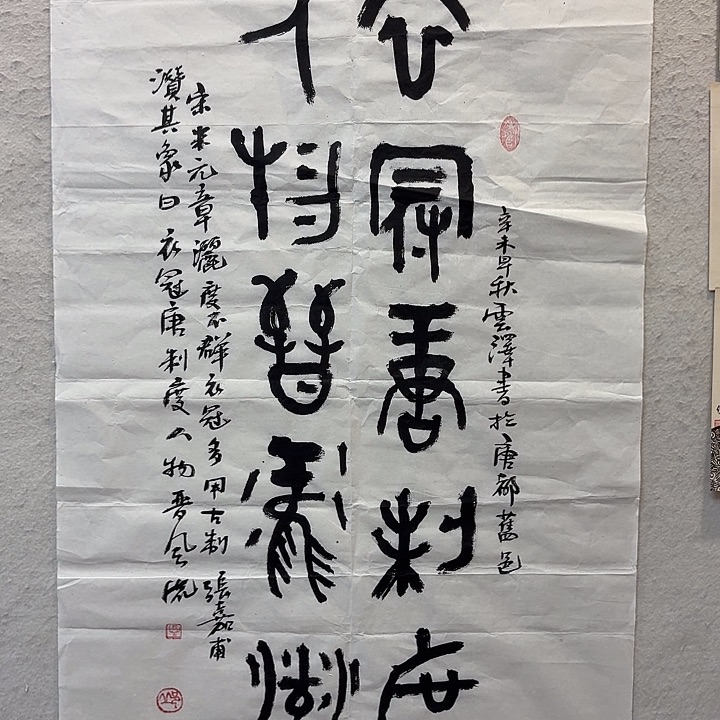 辛未早秋雲澤書於唐都舊邑
衣冠唐制度
人物晉風流
宋米元章灑度不群衣冠多用古制張嘉甫
讚其象曰衣冠唐制度人物晉風流